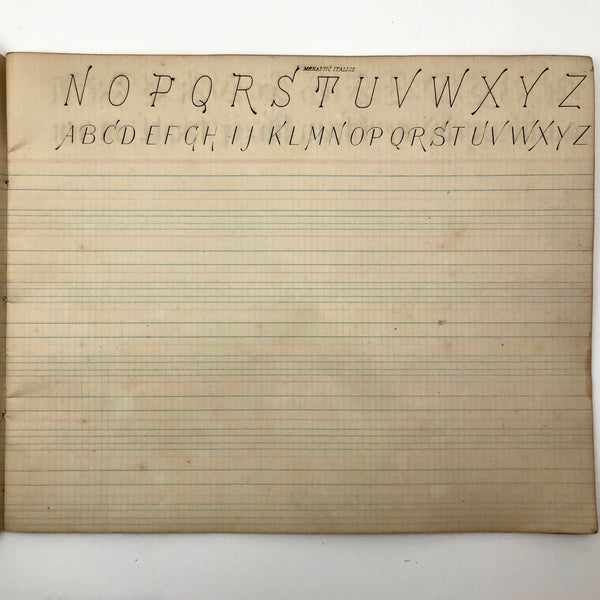 MONASTIC ITALICS
NOPQRSTUVWXYZ
ABCDEFGHIJKLMNOPQRSTUVWXYZ